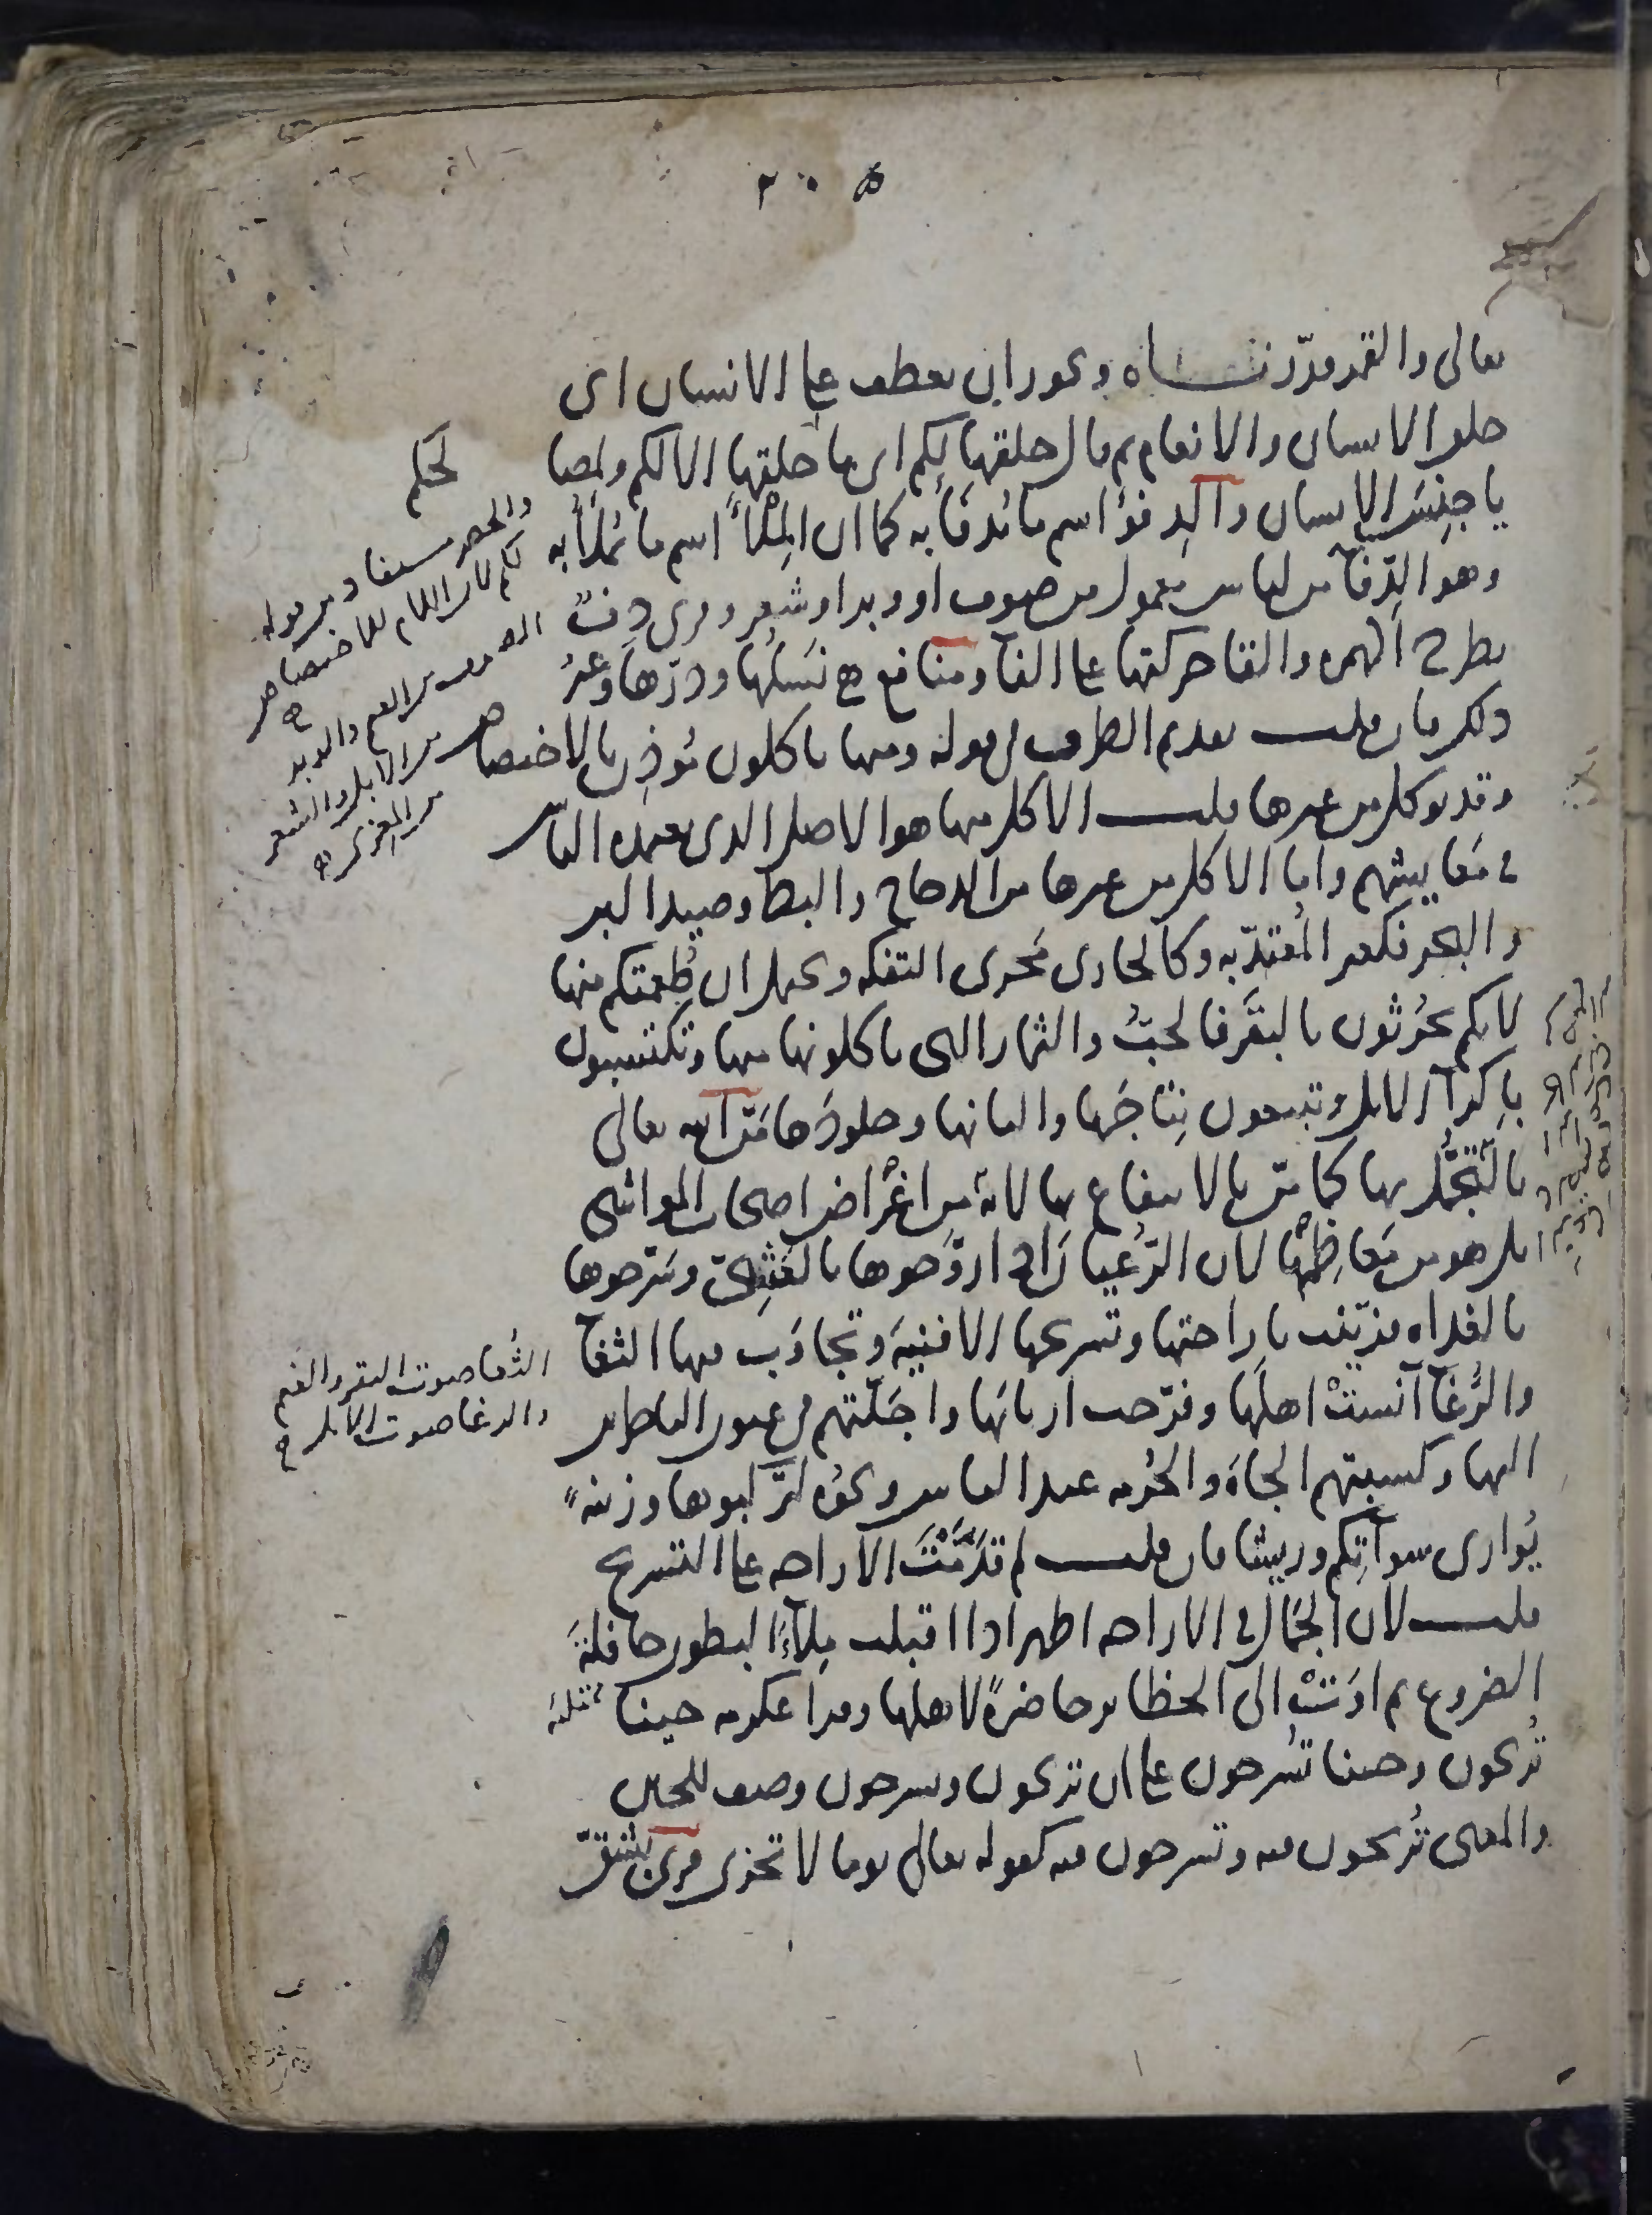 ٢٠٥
تعالى والقمر قدّرنـــاه ويجوز ان يعطف على الانسان اى
خلق الانسان والانعام ثم قال خلقها لكم اى ما خلقها الا لكم ولمصا لحكم
يا جِنسَ الإنسان والدِفؤ اسم ما يُدفَأُ به كما ان المِلْأَ اسم ما يُملَأُ به
وهو الدّفآ من لباس معمول من صوف او وبر او شعر وقرى دِفٌ
بطرح الهمزه والقا حركتها على الفا ومنافع هى نَسلُها ودَرّها وغيرُ
ذلك فان قلت تقديم الظرف فى قوله ومنها تاكلون مُوذِن بالاختصاص
وقد يوكل من غيرها قلت الاكل منها هو الاصل الذى يعتمده الناس
فى مَعايشهم واما الاكل من غيرها من الدجاج والبط وصيد البر
والبحر فكغير المُعتدّ به وكالجارى مَجرى التفكه ويحتمل ان طُعمتكم منها
لانكم تحرُثون بالبقَر فالحَبُّ والثمار التى تاكلونها منها وتكتسبون
باِكرآ الابل وتبيعون نِتاجَها والبانها وجلودَها مَنّ الله تعالى
بالتّجَمُّل بها كما منّ بالانتفاع بها لانه من اغْراض اصحاب المواشى
بل هو من مَعاظِمها لان الرُّعيان اذا روّحوها بالعَشِىّ وسَرّحوها
بالغداه فزيّنت باراحتها وتسريحها الافنيةَ وتجاوَبَ فيها الثغآ
والرُّغآ آنستْ اهلَها وفرّحت اربابَها واجَلّتهم فى عيون الناظرين
اليها وكسبتهم الجاهَ والحُرمه عند الناس ونحوُه لتركبوها وزينةً
يُوارى سوآتِكم وريشا فان قلت لم قُدّمَتْ الاراحه على التسريح
قلت لان الجمال فى الاراحه اظهر اذا اقبلت مِلآءَ البطون حافلةَ
الضروع ثم اوَتْ الى الحظائر حاضرةً لاهلها وقرا عكرمه حينا
تُريحون وحينا تَسرحون على ان تريحون وتسرحون وصف للحين
والمعنى تُريحون فيه وتسرحون فيه كقوله تعالى يوما لا تجزى قرى بشَقّ
والحصر مستفاد من قوله
لكم لان اللام للاختصاص
الصوف من الغنم والوبر
من الابل والشعر
من المعزى
الثغا صوت البقر والغنم
والرغا صوت الابل